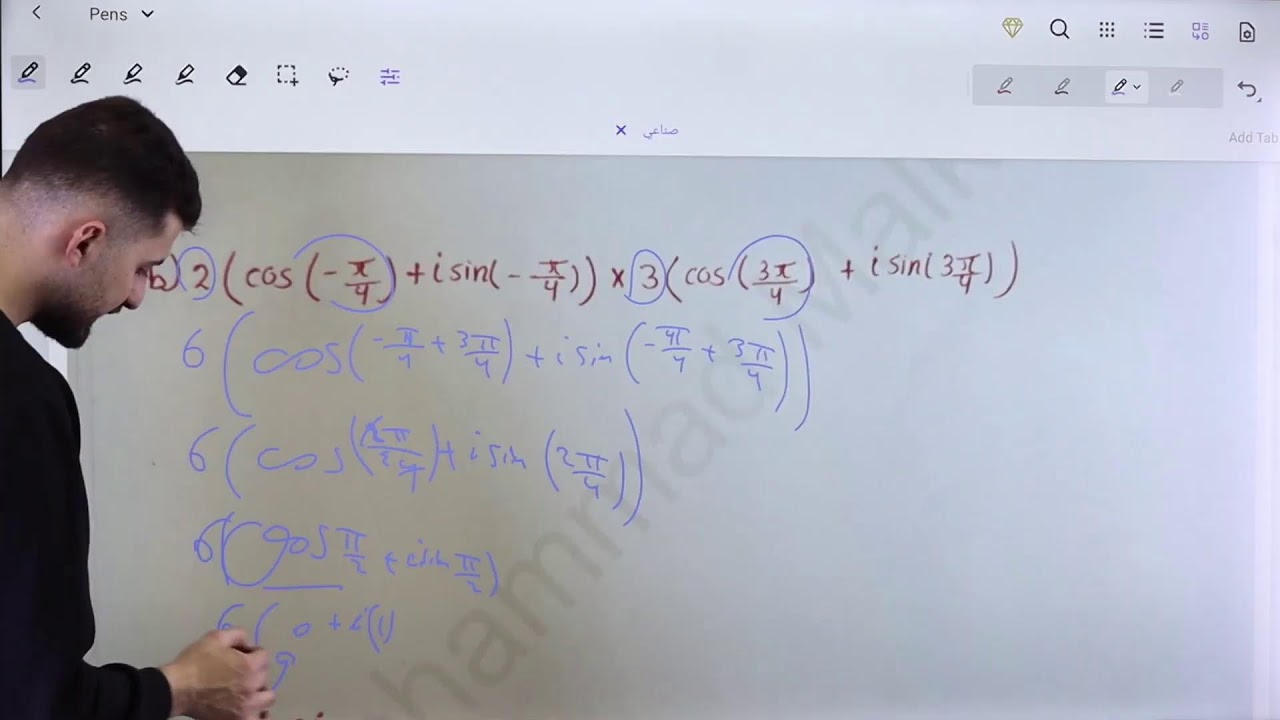 Pens
صناعي
Add Tab
b) 2 (cos(-π/4) + i sin(-π/4)) × 3 (cos(3π/4) + i sin(3π/4))
6 (cos(-π/4 + 3π/4) + i sin(-π/4 + 3π/4))
6 (cos(2π/4) + i sin(2π/4))
6 (cos π/2 + i sin π/2)
6 ( 0 + i(1)